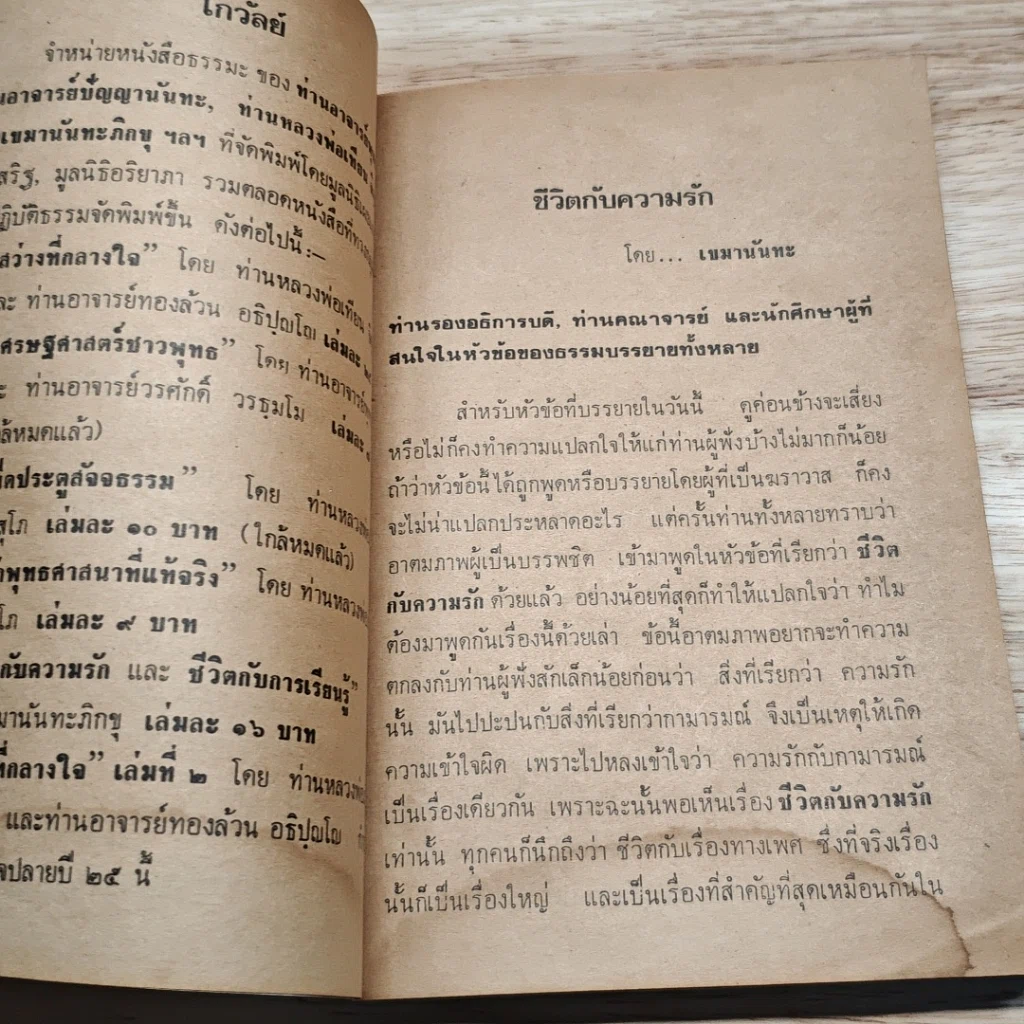 ไกวัลย์
จำหน่ายหนังสือธรรมะ ของ ท่านอาจารย์
อาจารย์ปัญญานันทะ, ท่านหลวงพ่อเทียน
เขมานันทะภิกขุ ฯลฯ ที่จัดพิมพ์โดยมูลนิธิ
มูลนิธิอริยาภา รวมตลอดหนังสือที่
ปฏิบัติธรรมจัดพิมพ์ขึ้น ดังต่อไปนี้ :—
สว่างที่กลางใจ” โดย ท่านหลวงพ่อเทียน
ท่านอาจารย์ทองล้วน อธิปุญฺโญ เล่มละ
เศรษฐศาสตร์ชาวพุทธ” โดย ท่านอาจารย์
ท่านอาจารย์วรศักดิ์ วรธมฺโม เล่มละ
ใกล้หมดแล้ว)
ประตูสัจจธรรม” โดย ท่านหลวง
สุโภ เล่มละ ๑๐ บาท (ใกล้หมดแล้ว)
พุทธศาสนาที่แท้จริง” โดย ท่านหลวง
เล่มละ ๙ บาท
กับความรัก และ ชีวิตกับการเรียนรู้”
เขมานันทะภิกขุ เล่มละ ๑๖ บาท
ที่กลางใจ” เล่มที่ ๒ โดย ท่านหลวงพ่อ
และท่านอาจารย์ทองล้วน อธิปุญฺโญ
ปลายปี ๒๕ นี้
ชีวิตกับความรัก
โดย... เขมานันทะ
ท่านรองอธิการบดี, ท่านคณาจารย์ และนักศึกษาผู้ที่
สนใจในหัวข้อของธรรมบรรยายทั้งหลาย
สำหรับหัวข้อที่บรรยายในวันนี้ ดูค่อนข้างจะเสี่ยง
หรือไม่ก็คงทำความแปลกใจให้แก่ท่านผู้ฟังบ้างไม่มากก็น้อย
ถ้าว่าหัวข้อนี้ได้ถูกพูดหรือบรรยายโดยผู้ที่เป็นฆราวาส ก็คง
จะไม่น่าแปลกประหลาดอะไร แต่ครั้นท่านทั้งหลายทราบว่า
อาตมภาพผู้เป็นบรรพชิต เข้ามาพูดในหัวข้อที่เรียกว่า ชีวิต
กับความรัก ด้วยแล้ว อย่างน้อยที่สุดก็ทำให้แปลกใจว่า ทำไม
ต้องมาพูดกันเรื่องนี้ด้วยเล่า ข้อนี้อาตมภาพอยากจะทำความ
ตกลงกับท่านผู้ฟังสักเล็กน้อยก่อนว่า สิ่งที่เรียกว่า ความรัก
นั้น มันไปปะปนกับสิ่งที่เรียกว่ากามารมณ์ จึงเป็นเหตุให้เกิด
ความเข้าใจผิด เพราะไปหลงเข้าใจว่า ความรักกับกามารมณ์
เป็นเรื่องเดียวกัน เพราะฉะนั้นพอเห็นเรื่อง ชีวิตกับความรัก
เท่านั้น ทุกคนก็นึกถึงว่า ชีวิตกับเรื่องทางเพศ ซึ่งที่จริงเรื่อง
นั้นก็เป็นเรื่องใหญ่ และเป็นเรื่องที่สำคัญที่สุดเหมือนกันใน